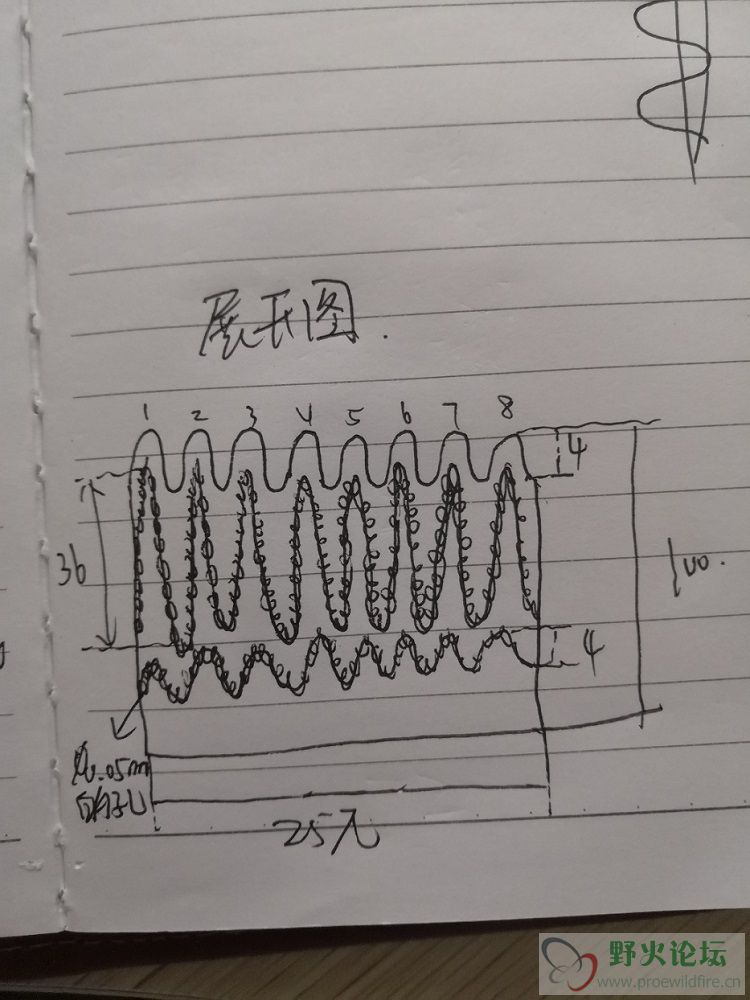 展开图.
1 2 3 4 5 6 7 8
4
36
100.
4
25π
野火论坛
www.proewildfire.cn